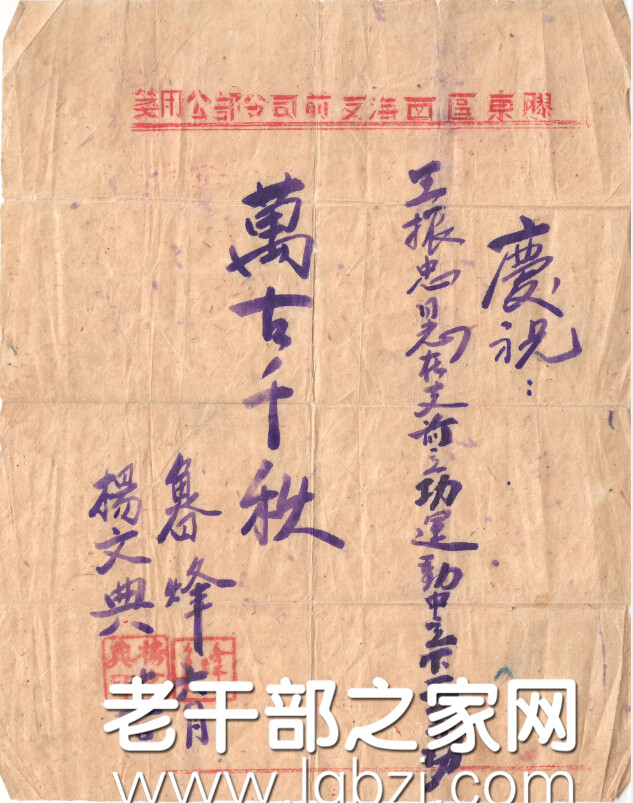 膠東區西海支前司令部公用箋
慶祝：
王振忠同志在支前立功運動中立下一功
萬古千秋
魯烽
楊文典
六月
老干部之家网
www.lgbzj.com